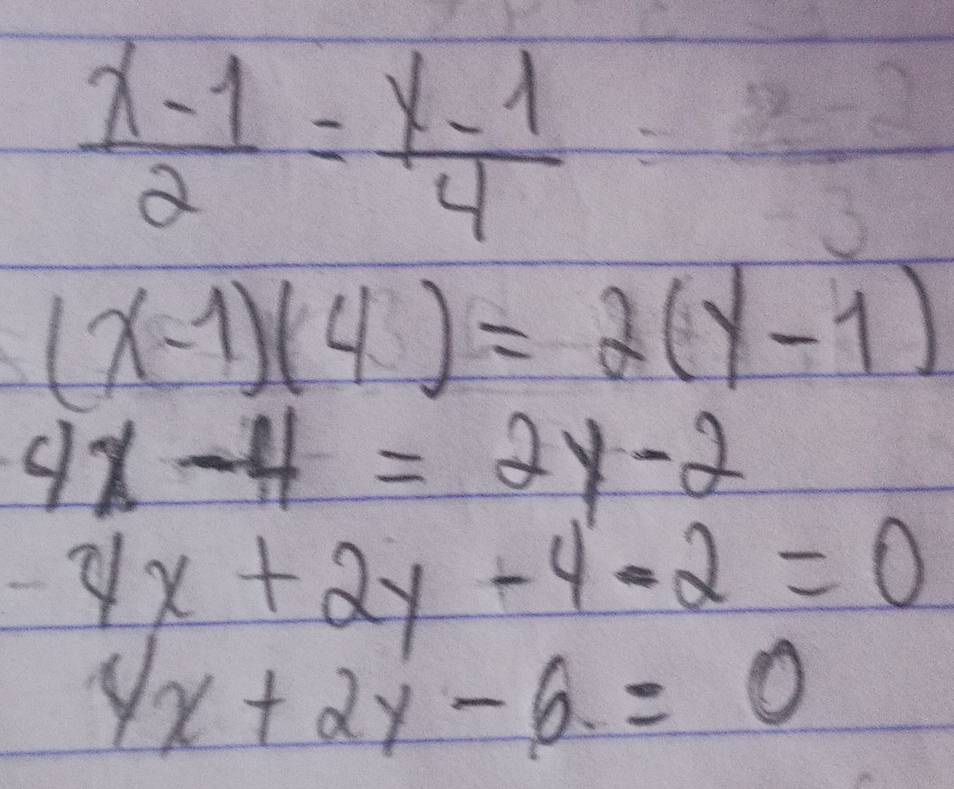 x-1/2 = y-1/4
(x-1)(4) = 2(y-1)
4x - 4 = 2y - 2
4x + 2y - 4 - 2 = 0
4x + 2y - 6 = 0